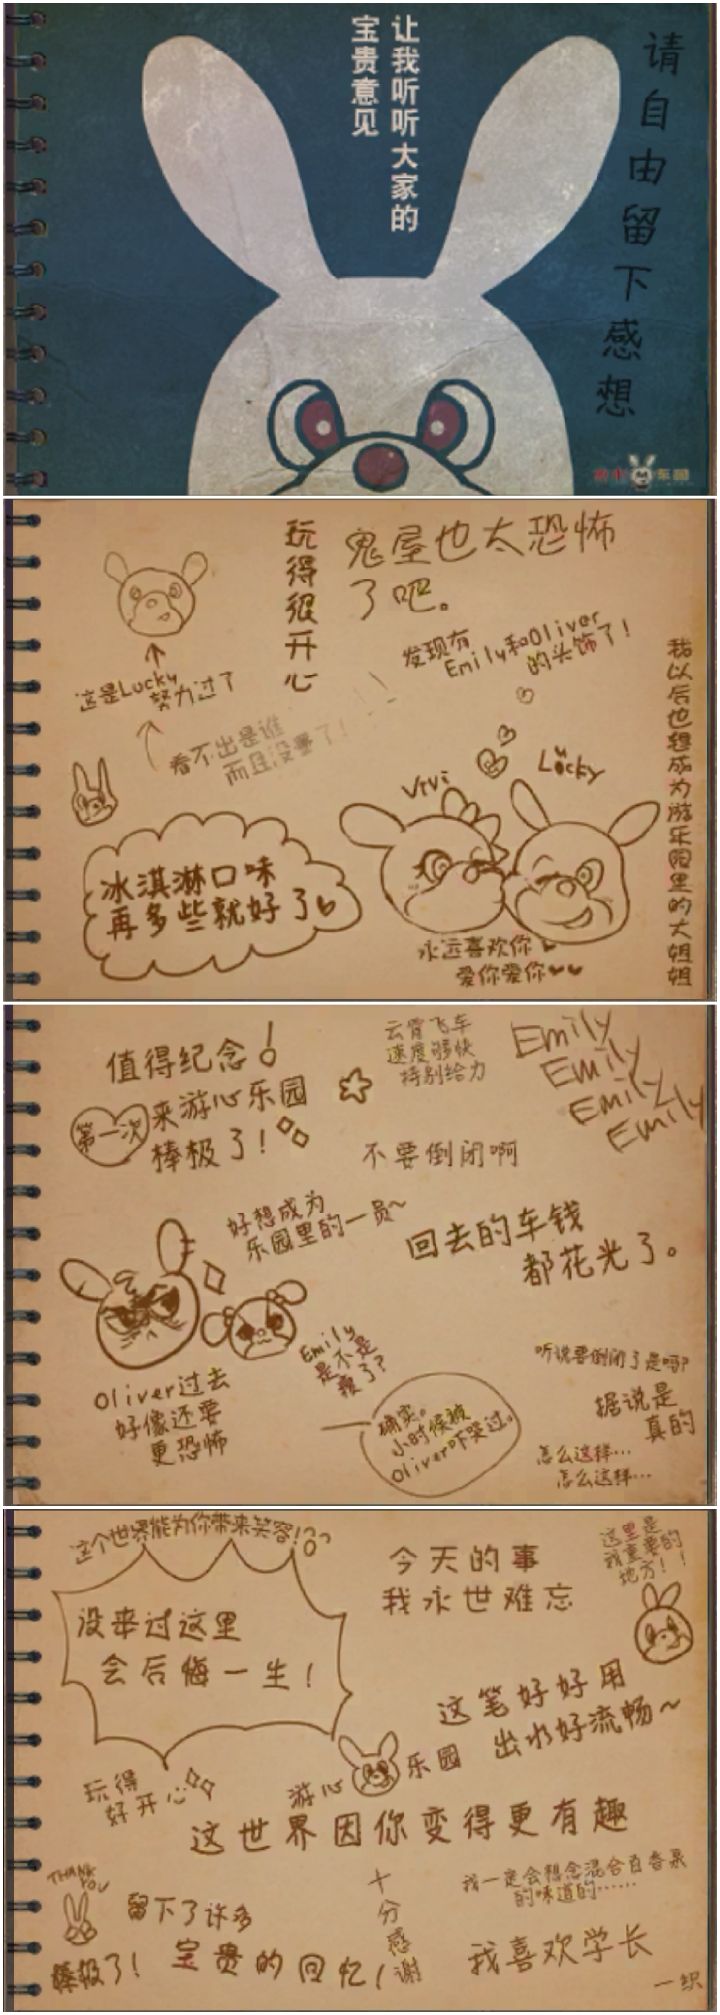 让我听听大家的
宝贵意见
请自由留下感想
玩得很开心
鬼屋也太恐怖
了吧。
发现有
Emily和Oliver
的头饰了!
这是Lucky
努力过了
看不出是谁
而且没画了!
我以后也想成为游乐园里的大姐姐
ViVi
Lucky
冰淇淋口味
再多些就好了
永远喜欢你
爱你爱你
值得纪念!
第一次来游心乐园
棒极了!
云霄飞车
速度够快
特别给力
Emily
Emily
Emily
Emily
不要倒闭啊
好想成为
乐园里的一员~
回去的车钱
都花光了。
Emily
是不是
瘦了?
Oliver过去
好像还要
更恐怖
确实。
小时候被
Oliver吓哭过。
听说要倒闭了是吗?
据说是
真的
怎么这样...
怎么这样...
这个世界能为你带来笑容!
没来过这里
会后悔一生!
今天的事
我永世难忘
这里是
我重要的
地方!!
这笔好好用
出水好流畅~
玩得
好开心
游心乐园
这世界因你变得更有趣
THANK
YOU
留下了许多
宝贵的回忆!
棒极了!
十分感谢
我一定会想念混合百香果
的味道的......
我喜欢学长
一织